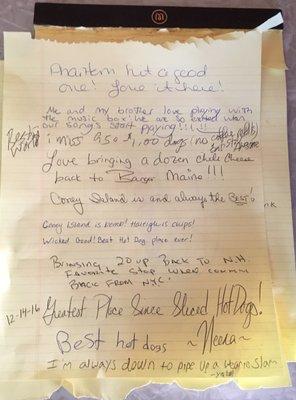 a good
one! Love it here!
Me and my brother love playing with
the music box! We are so exited when
our songs start playing!!!!
Best in
World
I miss .95¢ & 1.00 dogs! no
Love bringing a dozen Chili Cheese
back to Bangor Maine!!!
Coney Island is and always the BEST!
Coney Island is
Wicked Good! Best Hot Dog place ever!
Bringing 20 up Back to NH
Favorite Stop when
Back from NYC!
12-14-16 Greatest Place Since Sliced Hot Dogs!
Best hot dogs
I'm always down to pipe up a